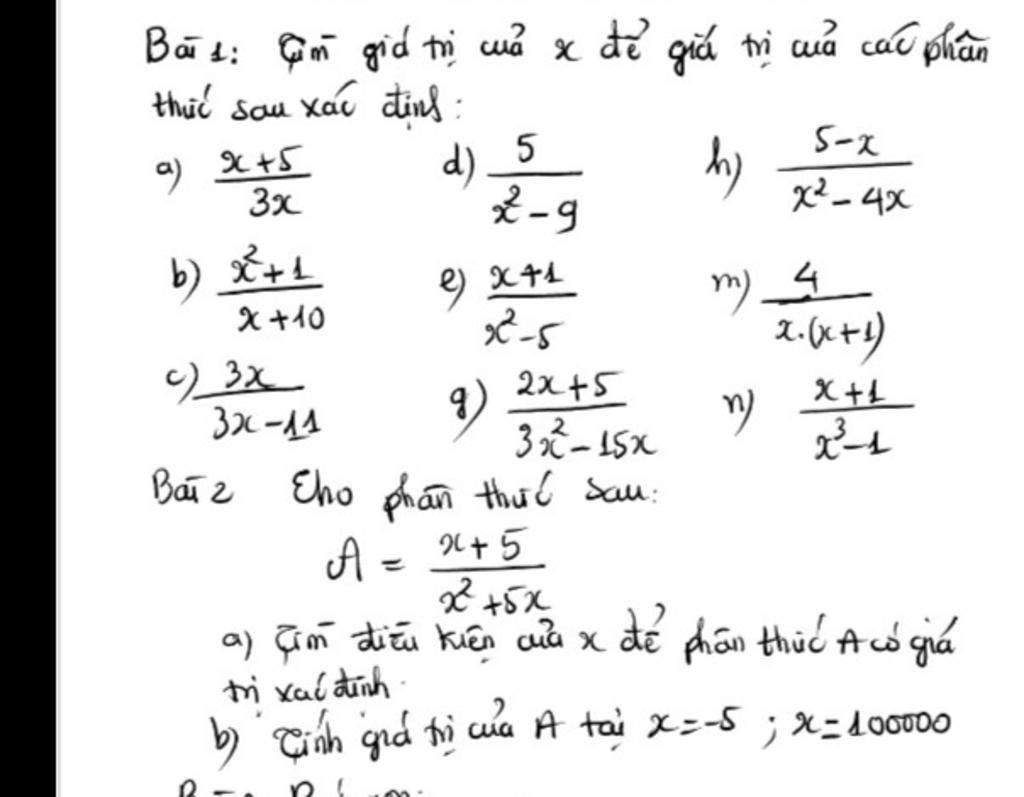 Bài 1: Tìm giá trị của x để giá trị của các phân
thức sau xác định:
a) (x+5)/(3x) d) 5/(x²-9) h) (5-x)/(x²-4x)
b) (x²+1)/(x+10) e) (x+1)/(x²-5) m) 4/(x.(x+1))
c) 3x/(3x-11) g) (2x+5)/(3x²-15x) n) (x+1)/(x³-1)
Bài 2 Cho phân thức sau:
A = (x+5)/(x²+5x)
a) Tìm điều kiện của x để phân thức A có giá
trị xác định.
b) Tính giá trị của A tại x=-5 ; x=100000